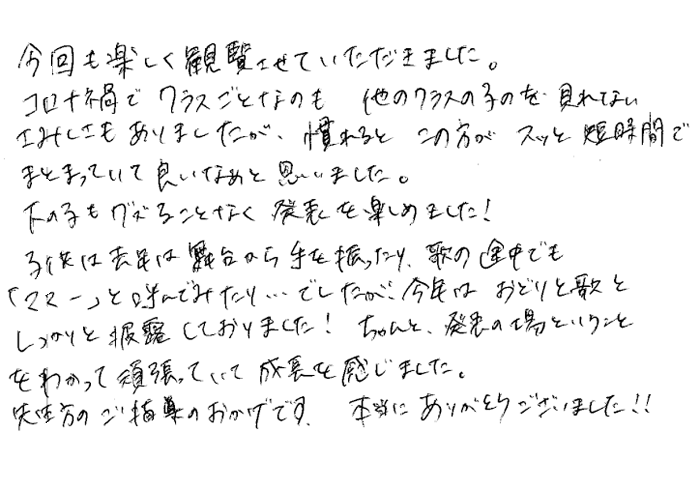 今回も楽しく観覧させていただきました。
コロナ禍でクラスごとなのも 他のクラスの子のを見れない
さみしさもありましたが、慣れると この方が スッと短時間で
まとまっていて良いなぁと思いました。
下の子もグズることなく発表を楽しめました!
子供は去年は舞台から手を振ったり、歌の途中でも
「ママー」と呼んでみたり…でしたが、今年は おどりと歌と
しっかりと披露しておりました! ちゃんと、発表の場ということ
をわかって頑張っていて成長を感じました。
先生方のご指導のおかげです. 本当にありがとうございました!!